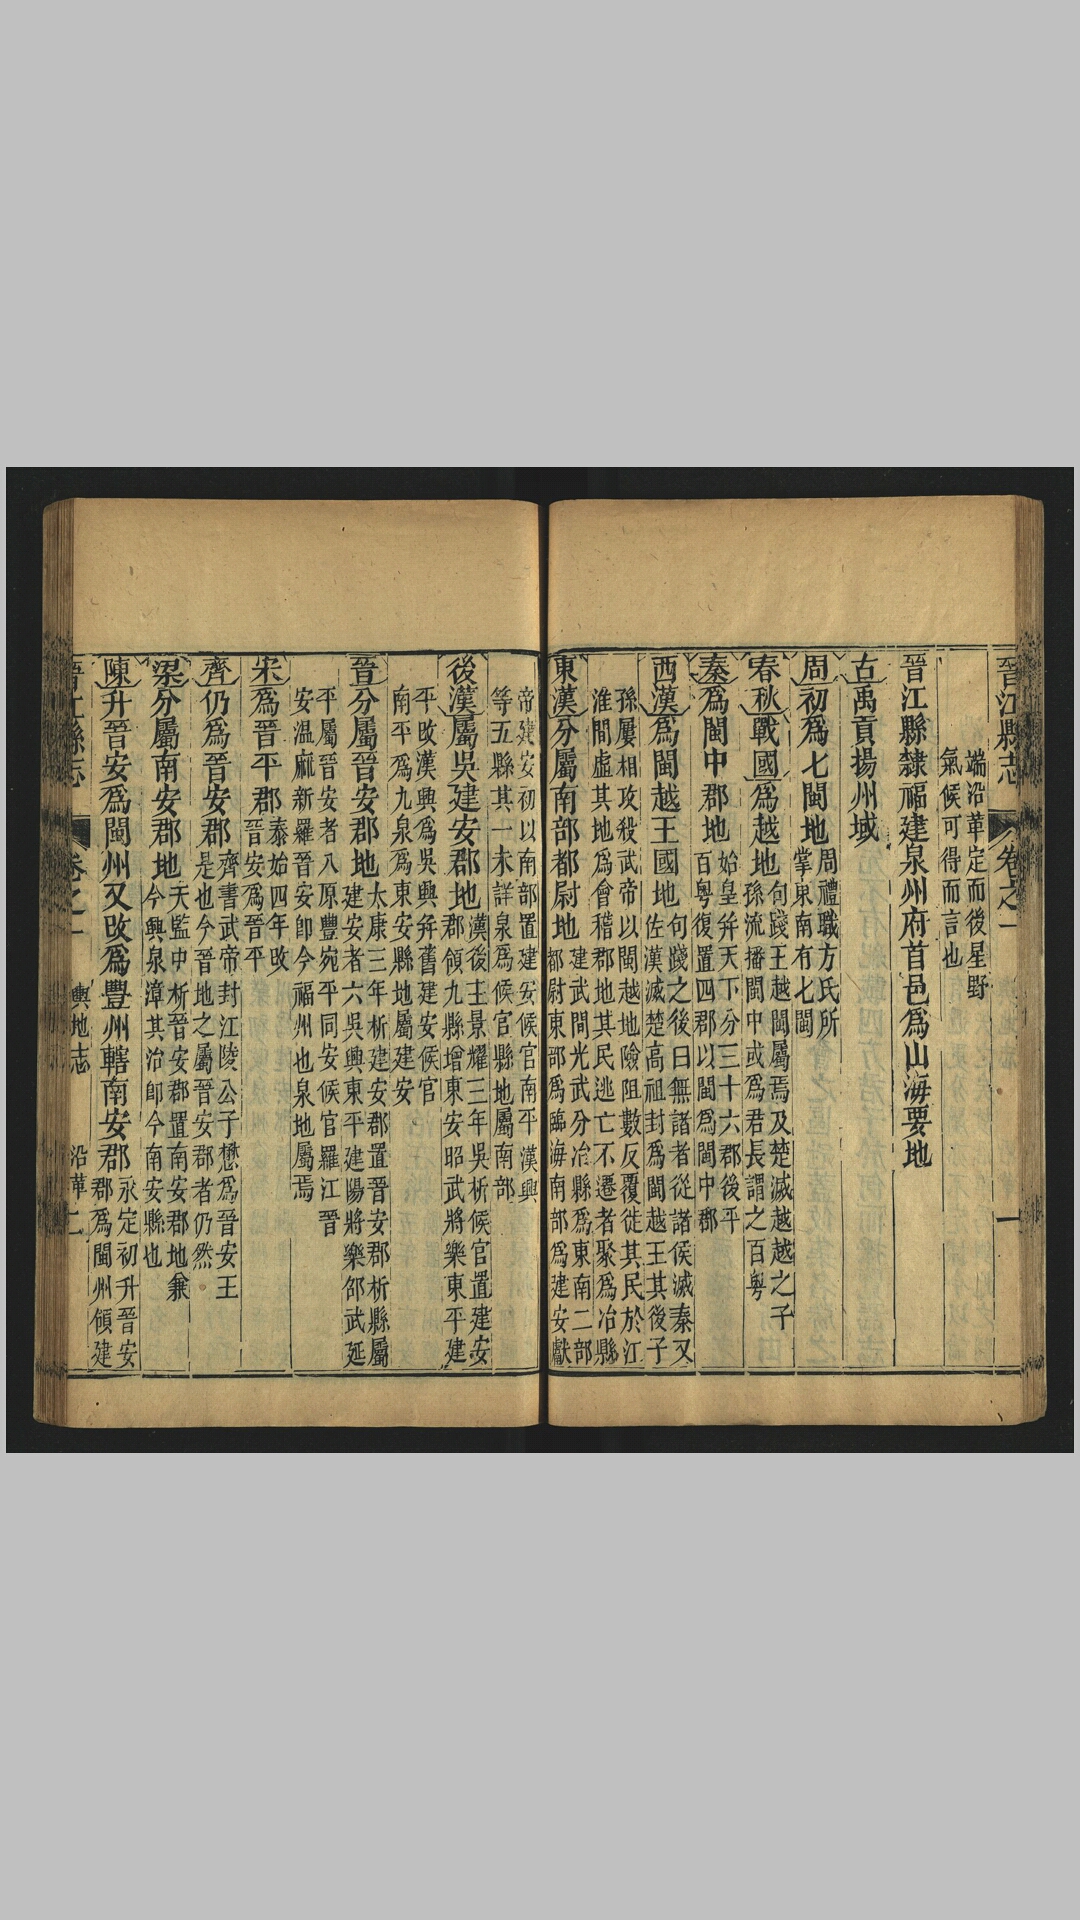 晉江縣志 卷之一 一
端沿革定而後星野
氣候可得而言也
晉江縣隸福建泉州府首邑爲山海要地
古禹貢揚州域
周初爲七閩地
周禮職方氏所
掌東南有七閩
春秋戰國爲越地
句踐王越閩屬焉及楚滅越越之子
孫流播閩中或爲君長謂之百粤
秦爲閩中郡地
始皇幷天下分三十六郡後平
百粤復置四郡以閩爲閩中郡
西漢爲閩越王國地
句踐之後曰無諸者從諸侯滅秦又
佐漢滅楚高祖封爲閩越王其後子
孫屢相攻殺武帝以閩越地險阻數反覆徙其民於江
淮間虛其地爲會稽郡地其民逃亡不遷者聚爲冶縣
東漢分屬南部都尉地
建武間光武分冶縣爲東南二部
都尉東部爲臨海南部爲建安獻
帝建安初以南部置建安候官南平漢興
等五縣其一未詳泉爲候官縣地屬南部
後漢屬吳建安郡地
漢後主景耀三年吳析候官置建安
郡領九縣增東安昭武將樂東平建
平改漢興爲吳興幷舊建安候官
南平爲九泉爲東安縣地屬建安
晉分屬晉安郡地
太康三年析建安郡置晉安郡析縣屬
建安者六吳興東平建陽將樂邵武延
平屬晉安者八原豐宛平同安候官羅江晉
安溫麻新羅晉安卽今福州也泉地屬焉
宋爲晉平郡
泰始四年改
晉安爲晉平
齊仍爲晉安郡
齊書武帝封江陵公子懋爲晉安王
是也今晉地之屬晉安郡者仍然
梁分屬南安郡地
天監中析晉安郡置南安郡地兼
今興泉漳其治卽今南安縣也
陳升晉安爲閩州又改爲豐州轄南安郡
永定初升晉安
郡爲閩州領建
晉江縣志 卷之一 輿地志 沿革 二